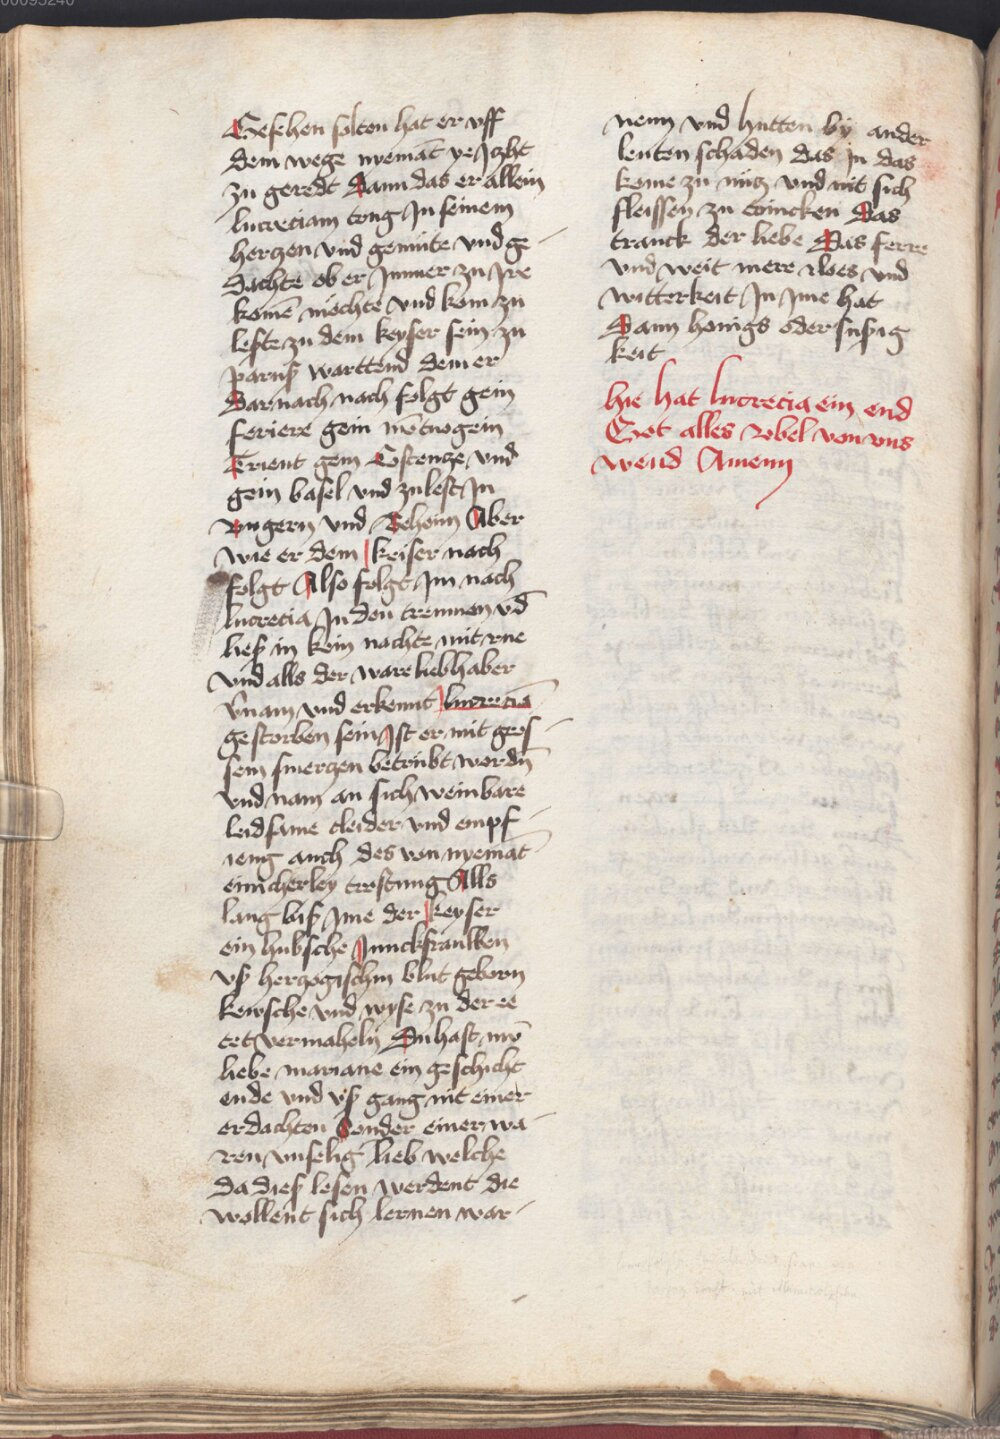 00095240
Gesehen solten hat er vff
dem wege nyemāt ye Jcht
zu geredt Dann das er allein
lucreciam trug Jn seinem
herczen vnd gemüte vnd ge
dachte ob er Jmmer zu Jre
komē möchte vnd kom zu
leste zu dem keyser sein zu
parusz warttend dem er
Darnach nach folgt gein
feriere gein mōtuogein
Trient gein Costencze vnd
gein basel vnd zulest Jn
vngern vnd Beheim Aber
wie er dem keiser nach
folgt Also folgt Jm nach
lucrecia Jn den tremmen vn̄
liesz in kein nachte mit rue
vnd alls der ware liebhaber
v̄nam vnd erkennt lucreciā
gestorben sein Jst er mit gros
sem smerczen betrübt wordn̄
vnd nam an sich weinbare
leidsame cleider vnd empf
ieng auch des von nyemāt
einicherley trostung Alls
lang bisz Jme der keyser
ein hubsche Junckfrauwen
vsz herczogischm blut geborn
kewsche vnd wyse zu der ee
tet vermaheln Du hast mō
liebe mariane ein geschicht
ende vnd vsz gang nit einer
erdachten Sonder einer wa
ren vnselig lieb welche
da diesz lesen werdent die
wollent sich lernen war
nenn vnd hutten by ander
leuten schaden das jn das
kome zu nücz vnd nit sich
fleissen zu trincken Das
tranck der liebe Das ferre
vnd weit mere aloes vnd
witterkeit Jn Jme hat
Dann honigs oder suszig
keit
Hie hat lucrecia ein end
Got alles vbel von vns
wend Amenn